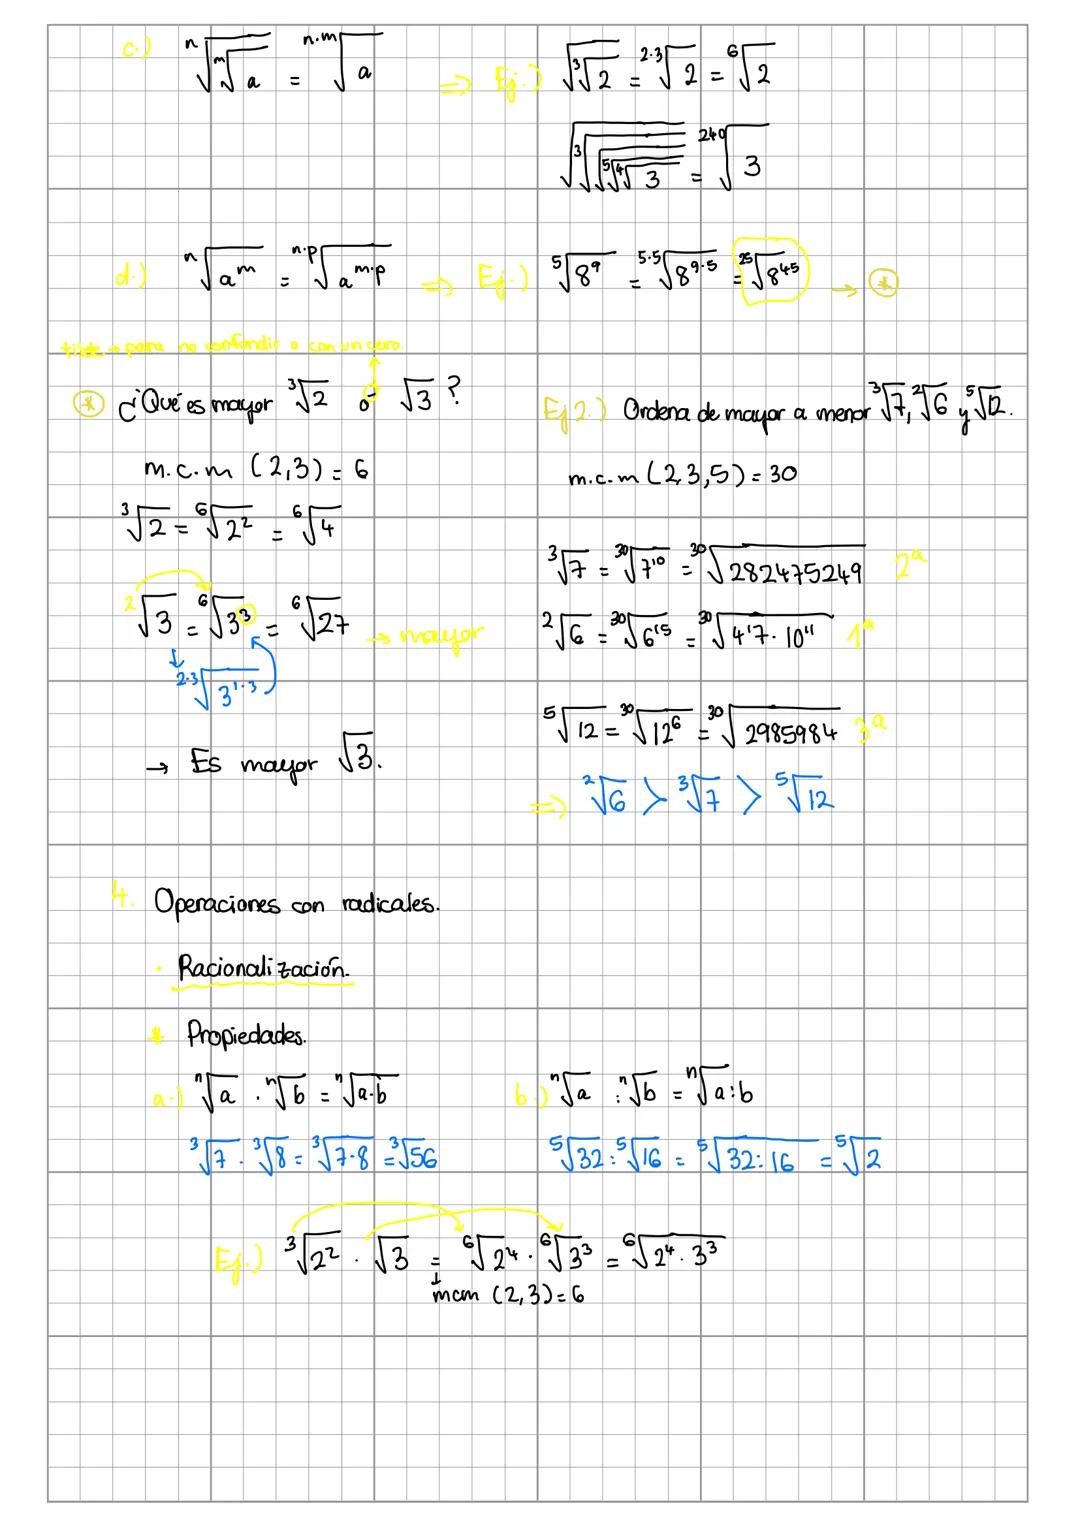 c.) ⁿ√(ᵐ√a) = ⁿ·ᵐ√a ⇒ Ej.) √(³√2) = ²·³√2 = ⁶√2
√(³√(√(√(⁵√(⁴√3))))) = ²⁴⁰√3
d.) ⁿ√(aᵐ) = ⁿ·ᵖ√(aᵐ·ᵖ) ⇒ Ej.) ⁵√(8⁹) = ⁵·⁵√(8⁹·⁵) = ²⁵√(8⁴⁵) → *
tilde → para no confundir o con un cero.
* ¿Qué es mayor ³√2 ó √3?
m.c.m (2,3) = 6
³√2 = ⁶√(2²) = ⁶√4
²√3 = ⁶√(3³) = ⁶√27 → mayor
²·³√(3¹·³)
→ Es mayor √3.
Ej 2.) Ordena de mayor a menor ³√7, ²√6 y ⁵√12.
m.c.m (2,3,5) = 30
³√7 = ³⁰√(7¹⁰) = ³⁰√282475249 2ª
²√6 = ³⁰√(6¹⁵) = ³⁰√(4'7 · 10¹¹) 1ª
⁵√12 = ³⁰√(12⁶) = ³⁰√2985984 3ª
⇒ ²√6 > ³√7 > ⁵√12
4. Operaciones con radicales.
· Racionalización.
* Propiedades.
a.) ⁿ√a · ⁿ√b = ⁿ√(a·b) b.) ⁿ√a : ⁿ√b = ⁿ√(a:b)
³√7 · ³√8 = ³√(7·8) = ³√56 ⁵√32 : ⁵√16 = ⁵√(32:16) = ⁵√2
Ej.) ³√(2²) · √3 = ⁶√(2⁴) · ⁶√(3³) = ⁶√(2⁴ · 3³)
mcm (2,3) = 6